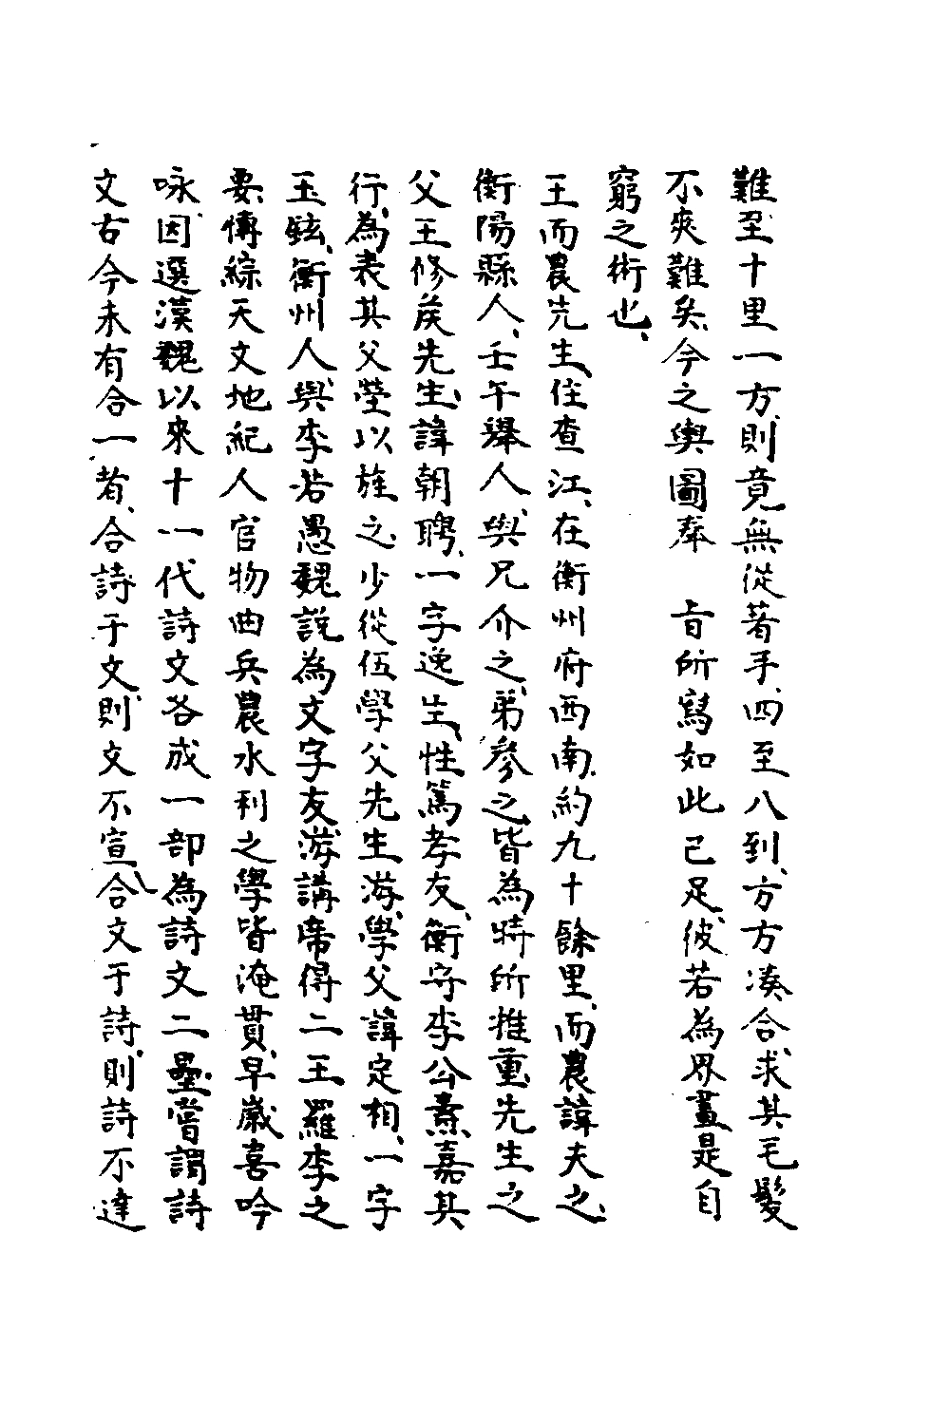 難至十里一方、則竟無從著手、四至八到、方方湊合、求其毛髮
不爽難矣、今之輿圖奉　旨所寫如此已足、彼若為界畫是自
窮之術也、
王而農先生、住查江、在衡州府西南、約九十餘里、而農諱夫之、
衡陽縣人、壬午舉人、與兄介之、弟參之、皆為時所推重、先生之
父王修矦先生、諱朝聘、一字逸生、性篤孝友、衡守李公燾嘉其
行、為表其父塋以旌之、少從伍學父先生游、學父諱定相、一字
玉鉉、衡州人、與李若愚魏說為文字友、游講席得二王羅李之
要、博綜天文地紀人官物曲兵農水利之學皆淹貫、早歲喜吟
咏、因選漢魏以來十一代詩文各成一部為詩文二壘、嘗謂詩
文古今未有合一者、合詩于文、則文不宣、合文于詩、則詩不達